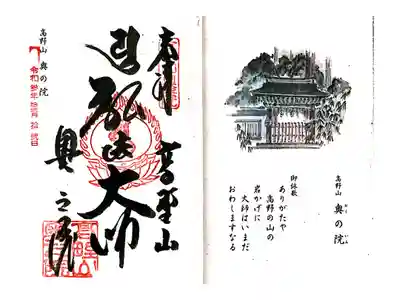 高野山
奥の院
おく
いん
御詠歌
ありがたや
高野の山の
岩かげに
大師はいまだ
おわしますなる
奉拝
高野山
弘法大師
奥之院
高野山 奥の院
令和